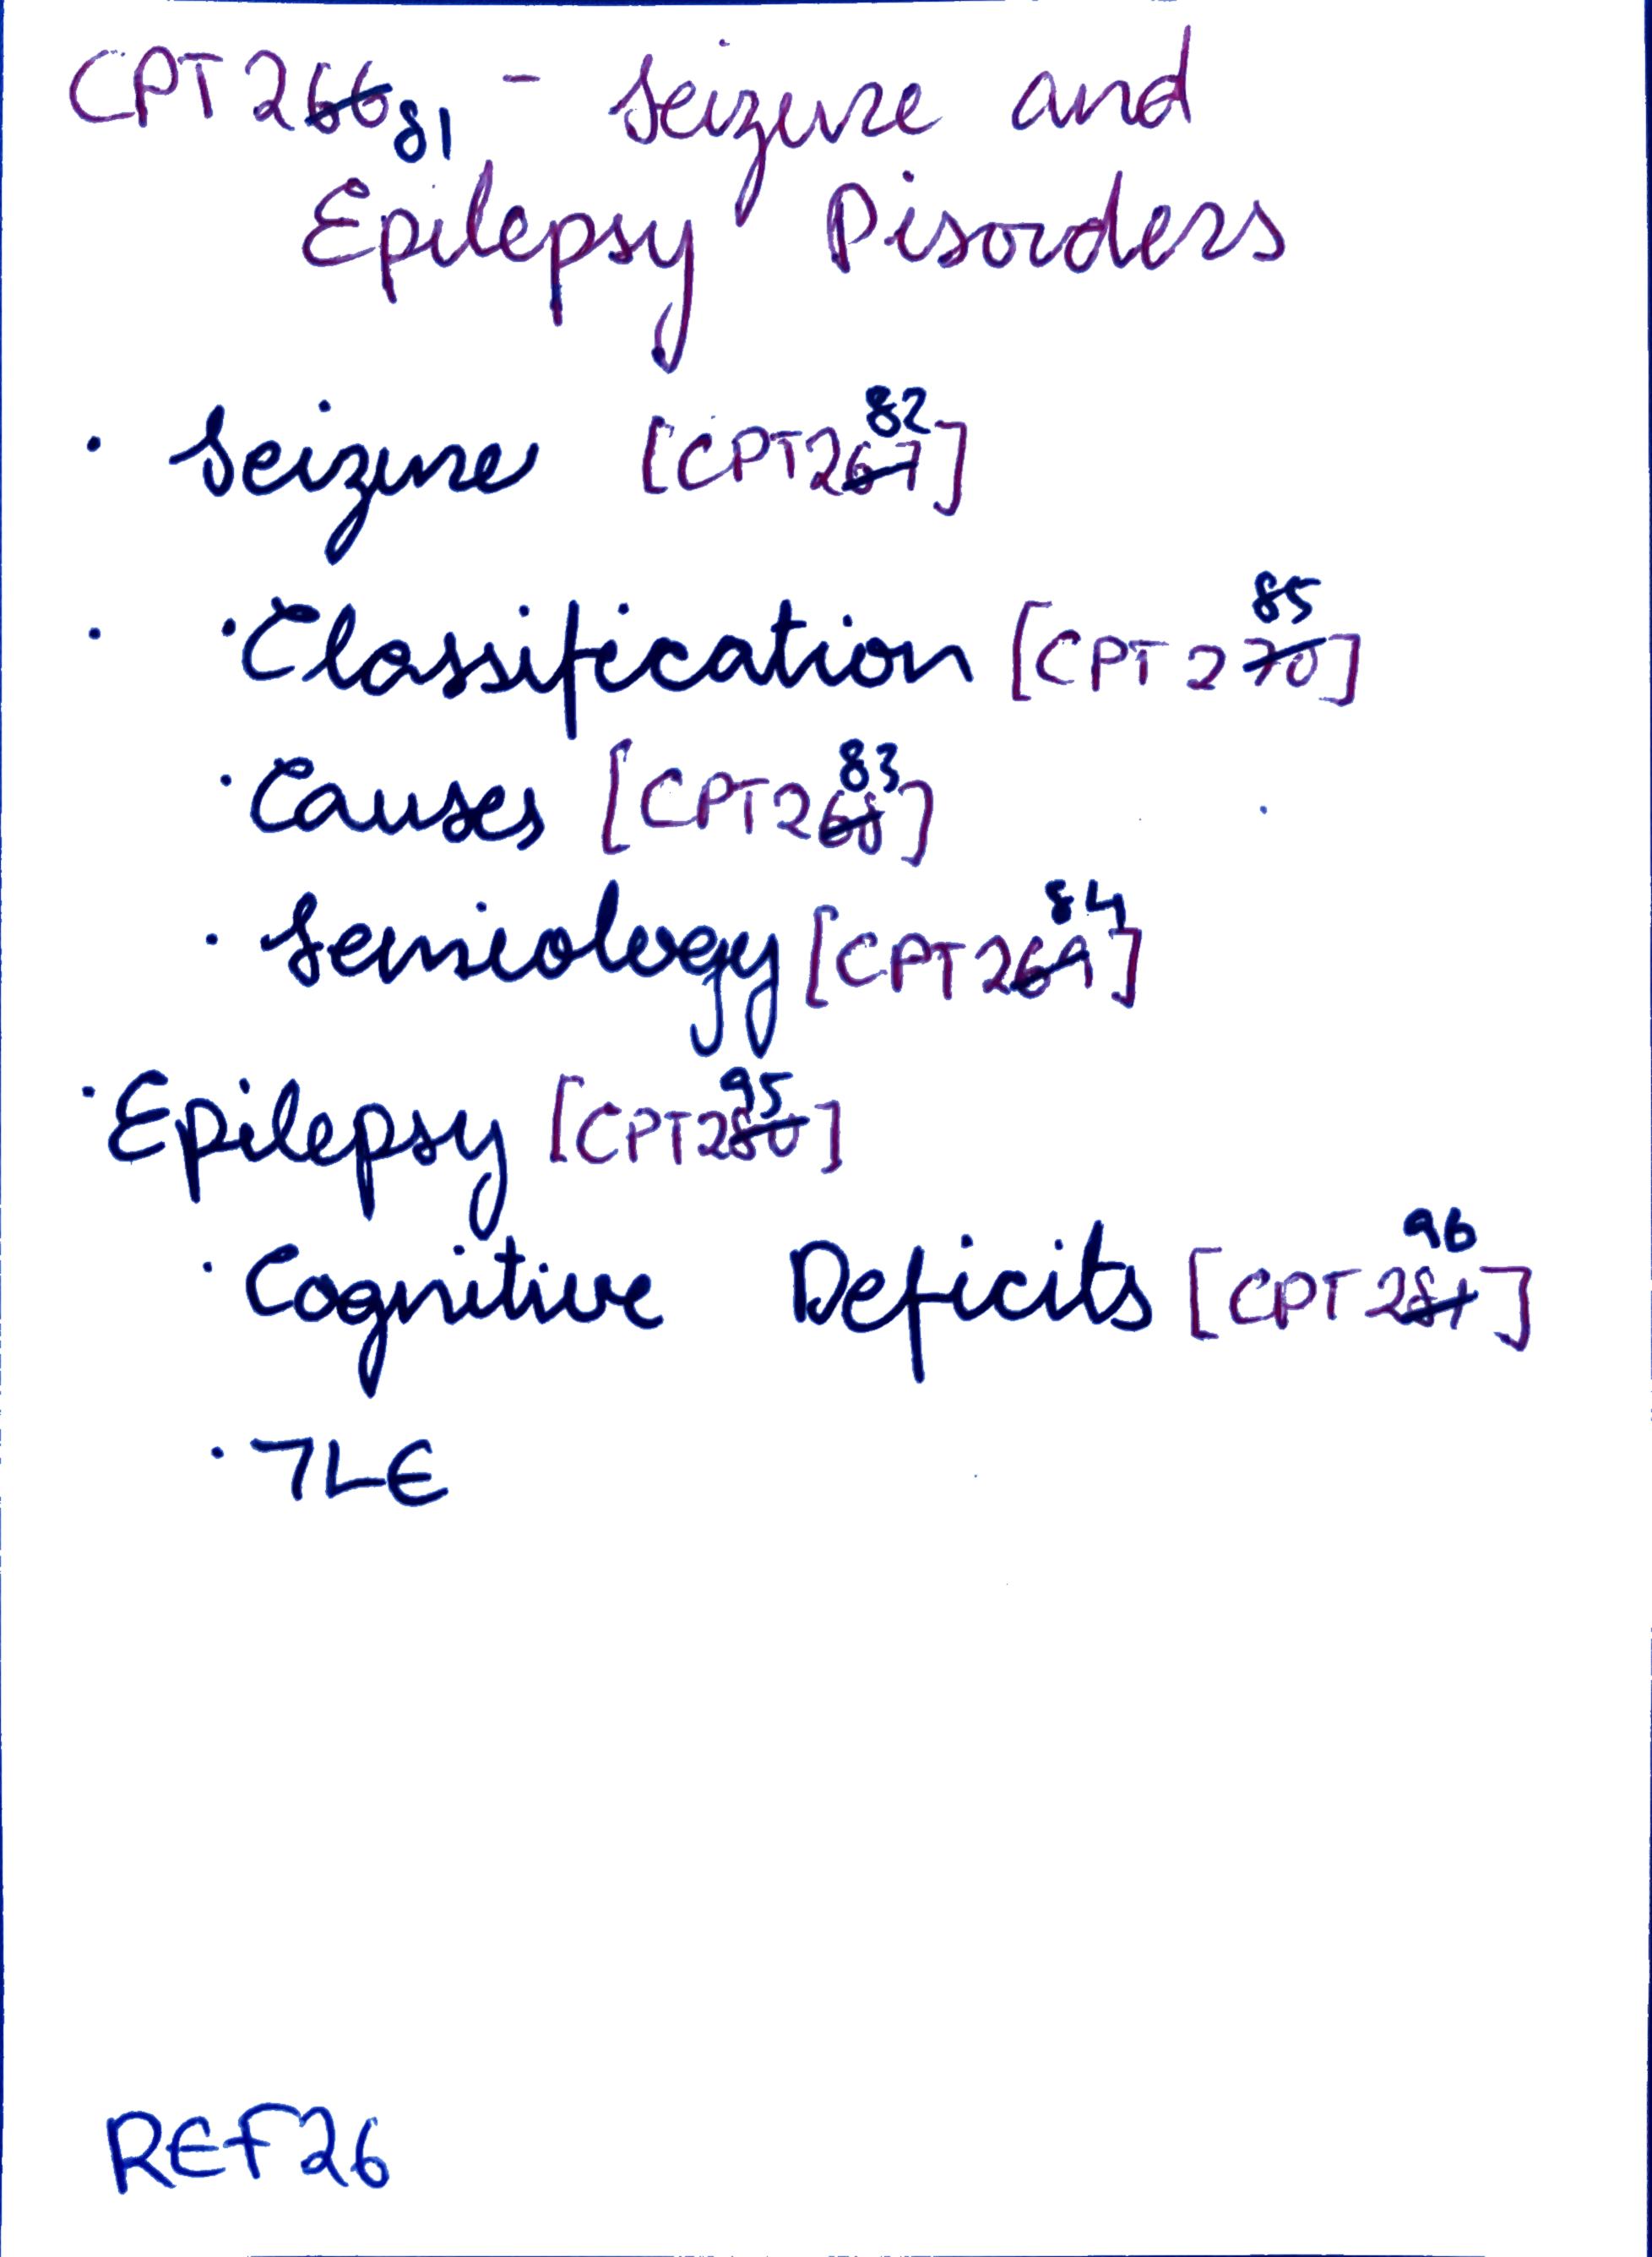 CPT 26681 - Seizure and
Epilepsy Disorders
· Seizure [CPT26782]
· · Classification [CPT 27085]
· Causes [CPT26883]
· Semiology [CPT 26984]
· Epilepsy [CPT28095]
· Cognitive Deficits [CPT 28196]
· TLE
REF26